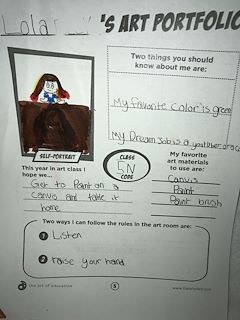 Lola
'S ART PORTFOLIO
Two things you should
know about me are:
My favorite color is green
My Dream job is a
SELF-PORTRAIT
CLASS
5N
CODE
My favorite
art materials
to use are:
Canvis
Paint
Paint brush
This year in art class I
hope we...
Get to Paint on a
Canvis and take it
home
Two ways I can follow the rules in the art room are:
1 Listen
2 raise your hand
the art of education
5